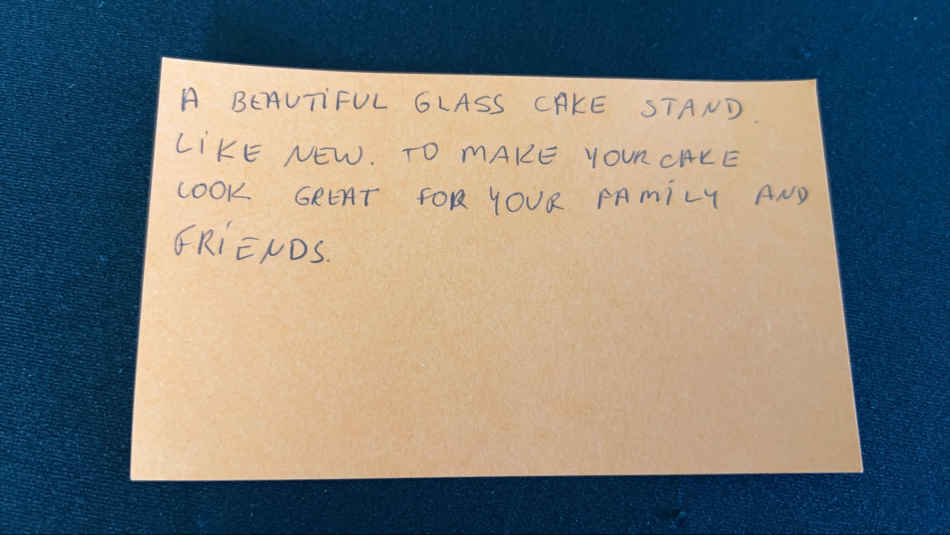 A BEAUTiFUL GLASS CAKE STAND.
LiKE NEW. TO MAKE YOUR CAKE
LOOK GREAT FOR YOUR FAMiLY AND
FRiENDS.